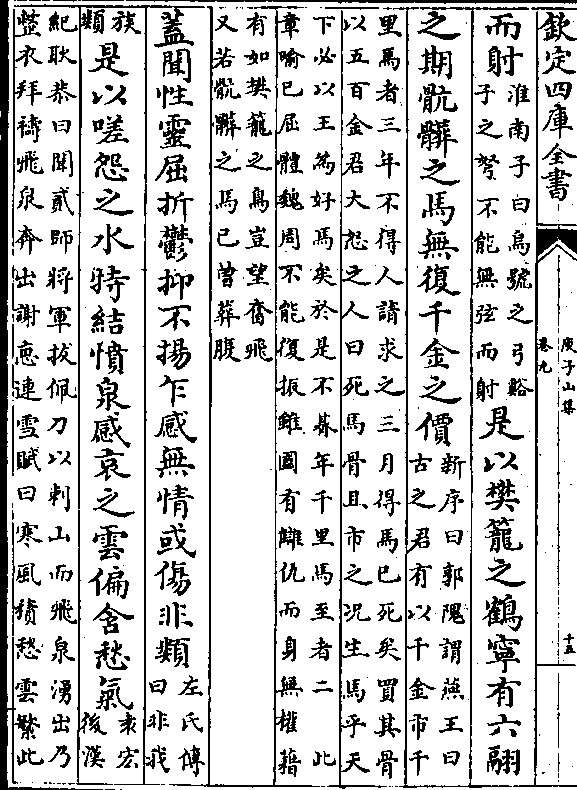 欽定四庫全書
庾子山集
卷九
十五
而射
淮南子曰烏號之弓谿
子之弩不能無弦而射
是以樊籠之鶴寧有六翮
之期骯髒之馬無復千金之價
新序曰郭隗謂燕王曰
古之君有以千金市千
里馬者三年不得人請求之三月得馬已死矣買其骨
以五百金君大怒之人曰死馬骨且市之况生馬乎天
下必以王為好馬矣於是不朞年千里馬至者二　此
章喻已屈體魏周不能復振雖國有讎仇而身無權藉
有如樊籠之鳥豈望奮飛
又若骯髒之馬已曽葬腹
蓋聞性靈屈折鬱抑不揚乍感無情或傷非類
左氏傳
曰非我
族
類
是以嗟怨之水特結憤泉感哀之雲偏含愁氣
袁宏
後漢
紀耿恭曰聞貳師將軍拔佩刀以刺山而飛泉湧出乃
整衣拜禱飛泉奔出謝惠連雪賦曰寒風積愁雲繁此